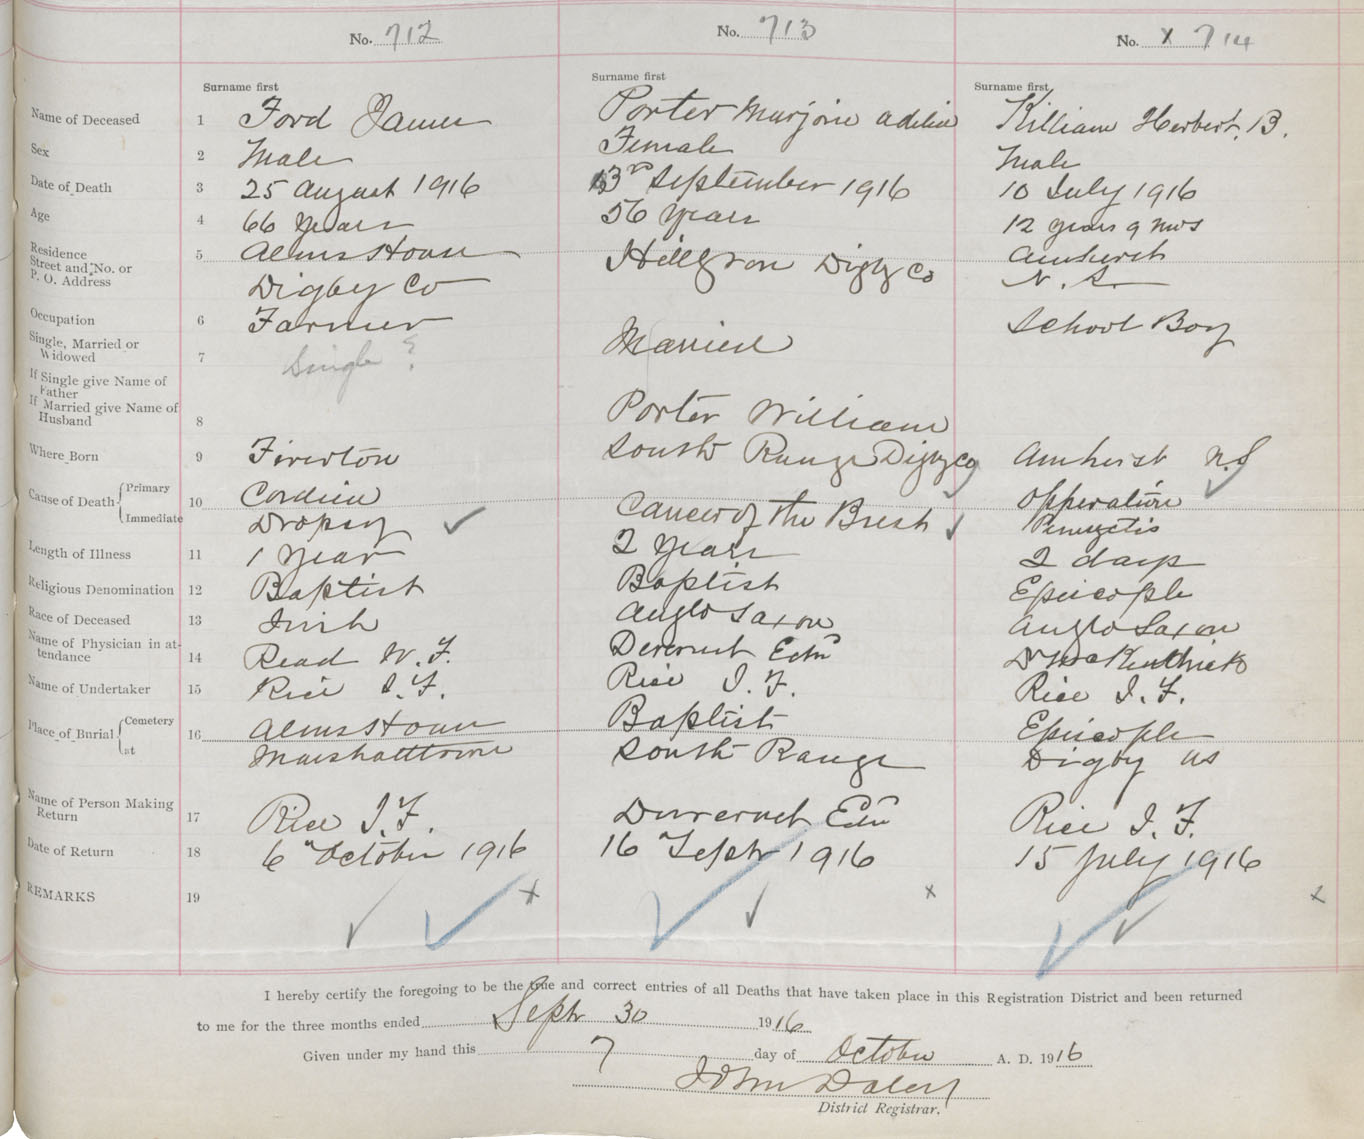 No. 712 No. 713 No. x 714
Surname first Surname first Surname first
Name of Deceased 1 Ford James Porter Marjorie adelia Killiam Herbert. B.
Sex 2 Male Female Male
Date of Death 3 25 august 1916 3rd September 1916 10 July 1916
Age 4 66 years 56 years 12 years 9 mos
Residence Street and No. or P. O. Address 5 Alms House Hillgrove Digby Co Amherst
Digby Co N. S.
Occupation 6 Farmer School Boy
Single, Married or Widowed 7 Single ? Married
If Single give Name of Father
If Married give Name of Husband 8 Porter William
Where Born 9 Tiverton South Range Digby Co Amherst N.S
Cause of Death Primary 10 Cordiea Cancer of the Brest Opperation
Immediate Dropsy
Length of Illness 11 1 year 2 years 2 days
Religious Denomination 12 Baptist Baptist Episcople
Race of Deceased 13 Irish Anglo Saxon Anglo Saxon
Name of Physician in attendance 14 Read W. F. Edn Dr
Name of Undertaker 15 Rice I. F. Rice I. F. Rice I. F.
Place of Burial Cemetery 16 Alms House Baptist Episcople
at Marshalltown South Range Digby NS
Name of Person Making Return 17 Rice I. F. Edn Rice I. F.
Date of Return 18 6" October 1916 16 Sept 1916 15 July 1916
REMARKS 19 x x x
I hereby certify the foregoing to be the true and correct entries of all Deaths that have taken place in this Registration District and been returned
to me for the three months ended Sept 30 1916
Given under my hand this 7 day of October A. D. 1916
John Daley
District Registrar.